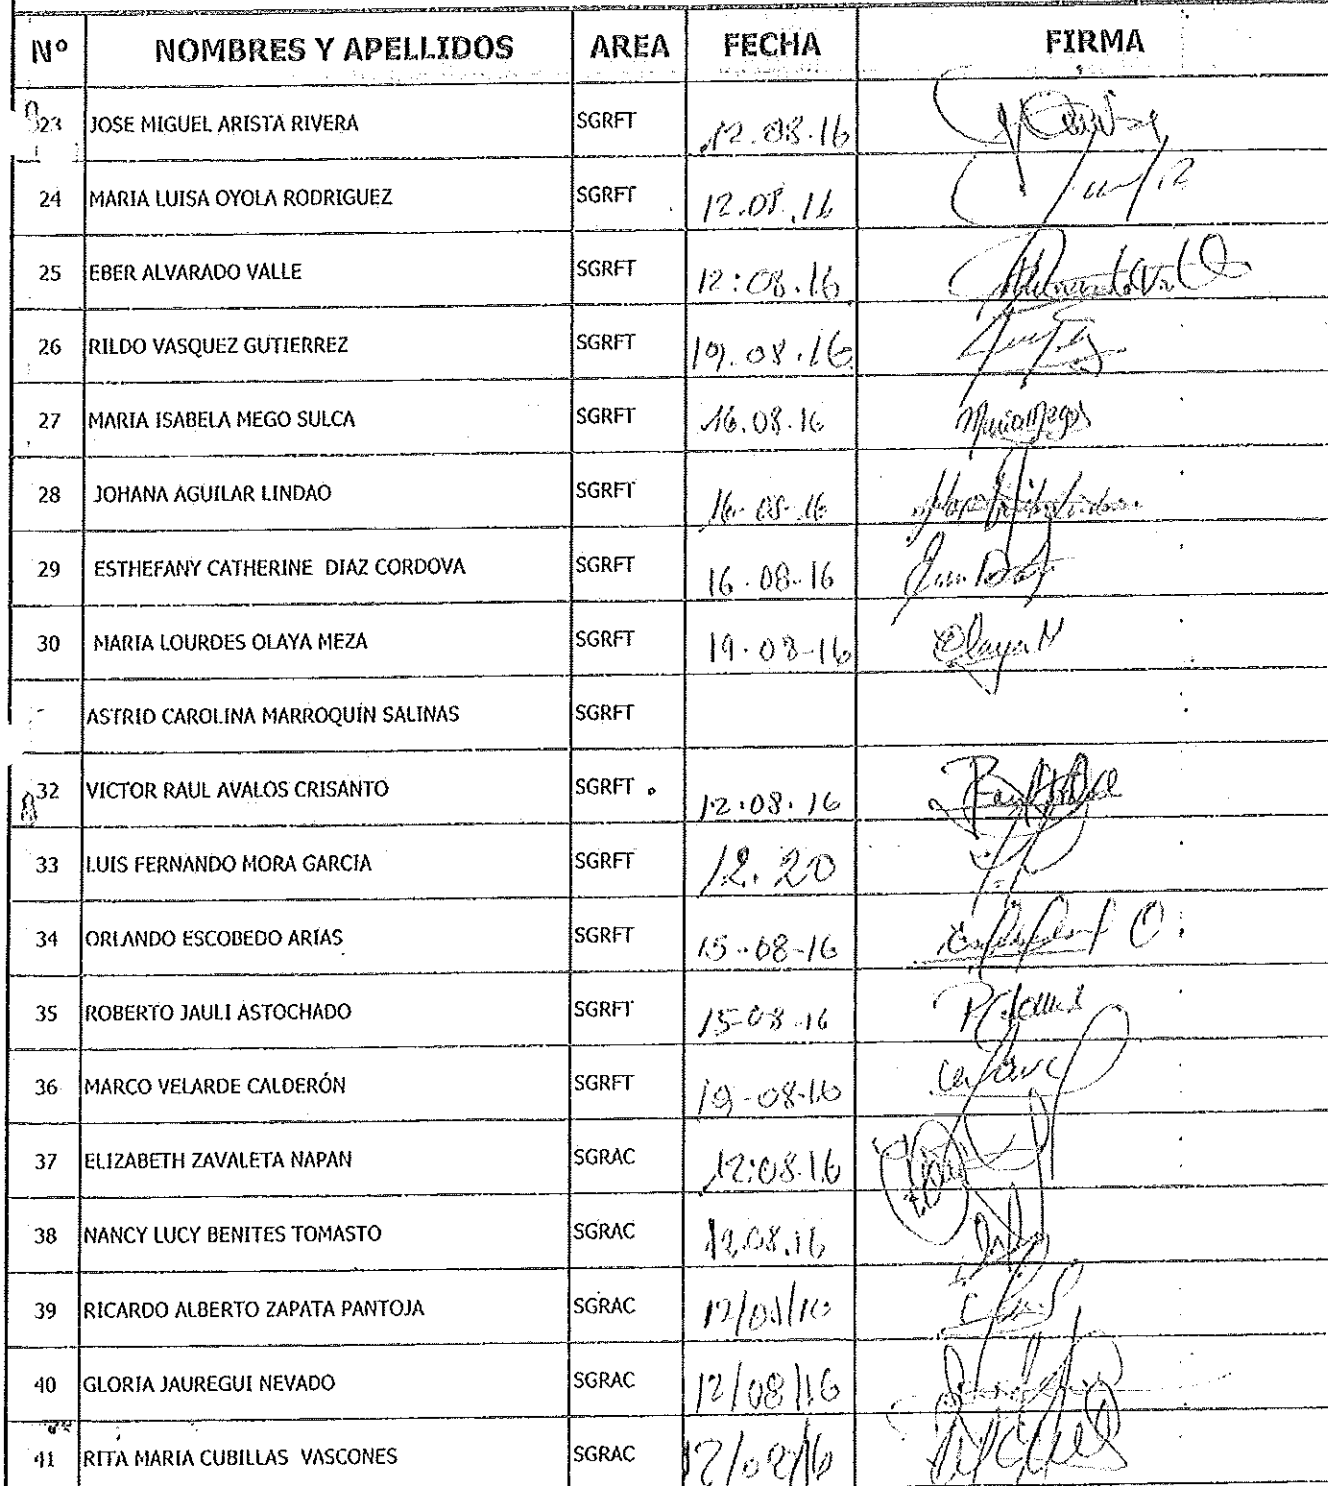 Nº NOMBRES Y APELLIDOS AREA FECHA FIRMA
23 JOSE MIGUEL ARISTA RIVERA SGRFT 12.08.16
24 MARIA LUISA OYOLA RODRIGUEZ SGRFT 12.08.16
25 EBER ALVARADO VALLE SGRFT 12:08.16
26 RILDO VASQUEZ GUTIERREZ SGRFT 19.08.16
27 MARIA ISABELA MEGO SULCA SGRFT 16.08.16
28 JOHANA AGUILAR LINDAO SGRFT 16-08-16
29 ESTHEFANY CATHERINE DIAZ CORDOVA SGRFT 16-08-16
30 MARIA LOURDES OLAYA MEZA SGRFT 19-08-16 Olaya M
ASTRID CAROLINA MARROQUÍN SALINAS SGRFT
32 VICTOR RAUL AVALOS CRISANTO SGRFT 12.08.16
33 LUIS FERNANDO MORA GARCIA SGRFT 12.20
34 ORLANDO ESCOBEDO ARIAS SGRFT 15-08-16
35 ROBERTO JAULI ASTOCHADO SGRFT 15-08-16
36 MARCO VELARDE CALDERÓN SGRFT 19-08-16
37 ELIZABETH ZAVALETA NAPAN SGRAC 12:08.16
38 NANCY LUCY BENITES TOMASTO SGRAC 12.08.16
39 RICARDO ALBERTO ZAPATA PANTOJA SGRAC 12/08/16
40 GLORIA JAUREGUI NEVADO SGRAC 12/08/16
41 RITA MARIA CUBILLAS VASCONES SGRAC 12/08/16